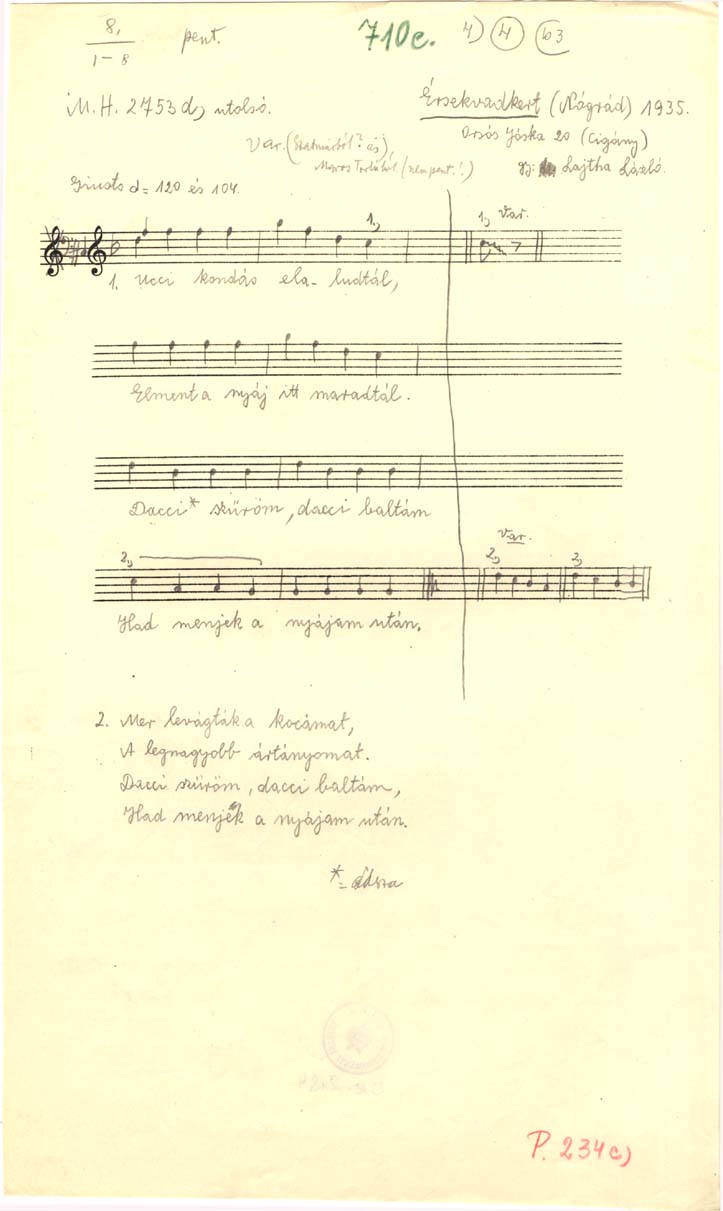 8, pent. 710c. 4) 4 b3
1-8
M.H. 2753 d, utolsó. Érsekvadkert (Nógrád) 1935.
Var. (Szatmárból? és), Orsós Jóska 20 (cigány)
Maros Tordából (nem pent.!) gy: Lajtha László.
Giusto = 120 és 104.
1, 1, Var.
1. Ucci kondás ela-ludtál,
Elment a nyáj itt maradtál.
Dacci* szűröm, dacci baltám
Var.
2, 2, 2,
Had menjek a nyájam után.
2. Mer levágták a kocámat,
A legnagyobb ártányomat.
Dacci szűröm, dacci baltám,
Had menjek a nyájam után.
P. 234c)